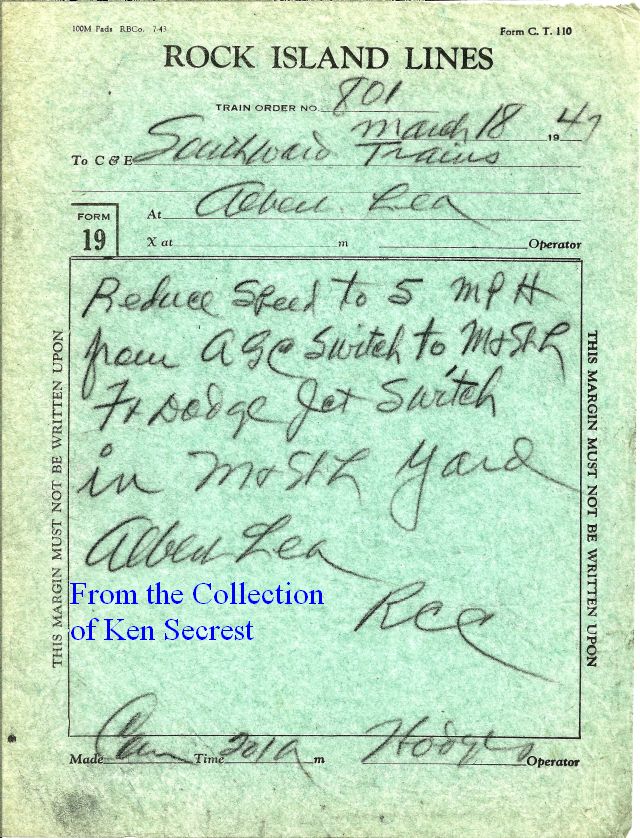 100M Pads RBCo. 7-43
Form C. T. 110
ROCK ISLAND LINES
TRAIN ORDER NO. 801
March 18 1947
To C & E Southward Trains
At Albert Lea
FORM 19
X at m Operator
Reduce Speed to 5 MPH
from AGC Switch to M&StL
Ft Dodge Jct Switch
in M&StL Yard
Albert Lea
RCC
THIS MARGIN MUST NOT BE WRITTEN UPON
THIS MARGIN MUST NOT BE WRITTEN UPON
From the Collection
of Ken Secrest
Made Com Time 201A m Hodges Operator